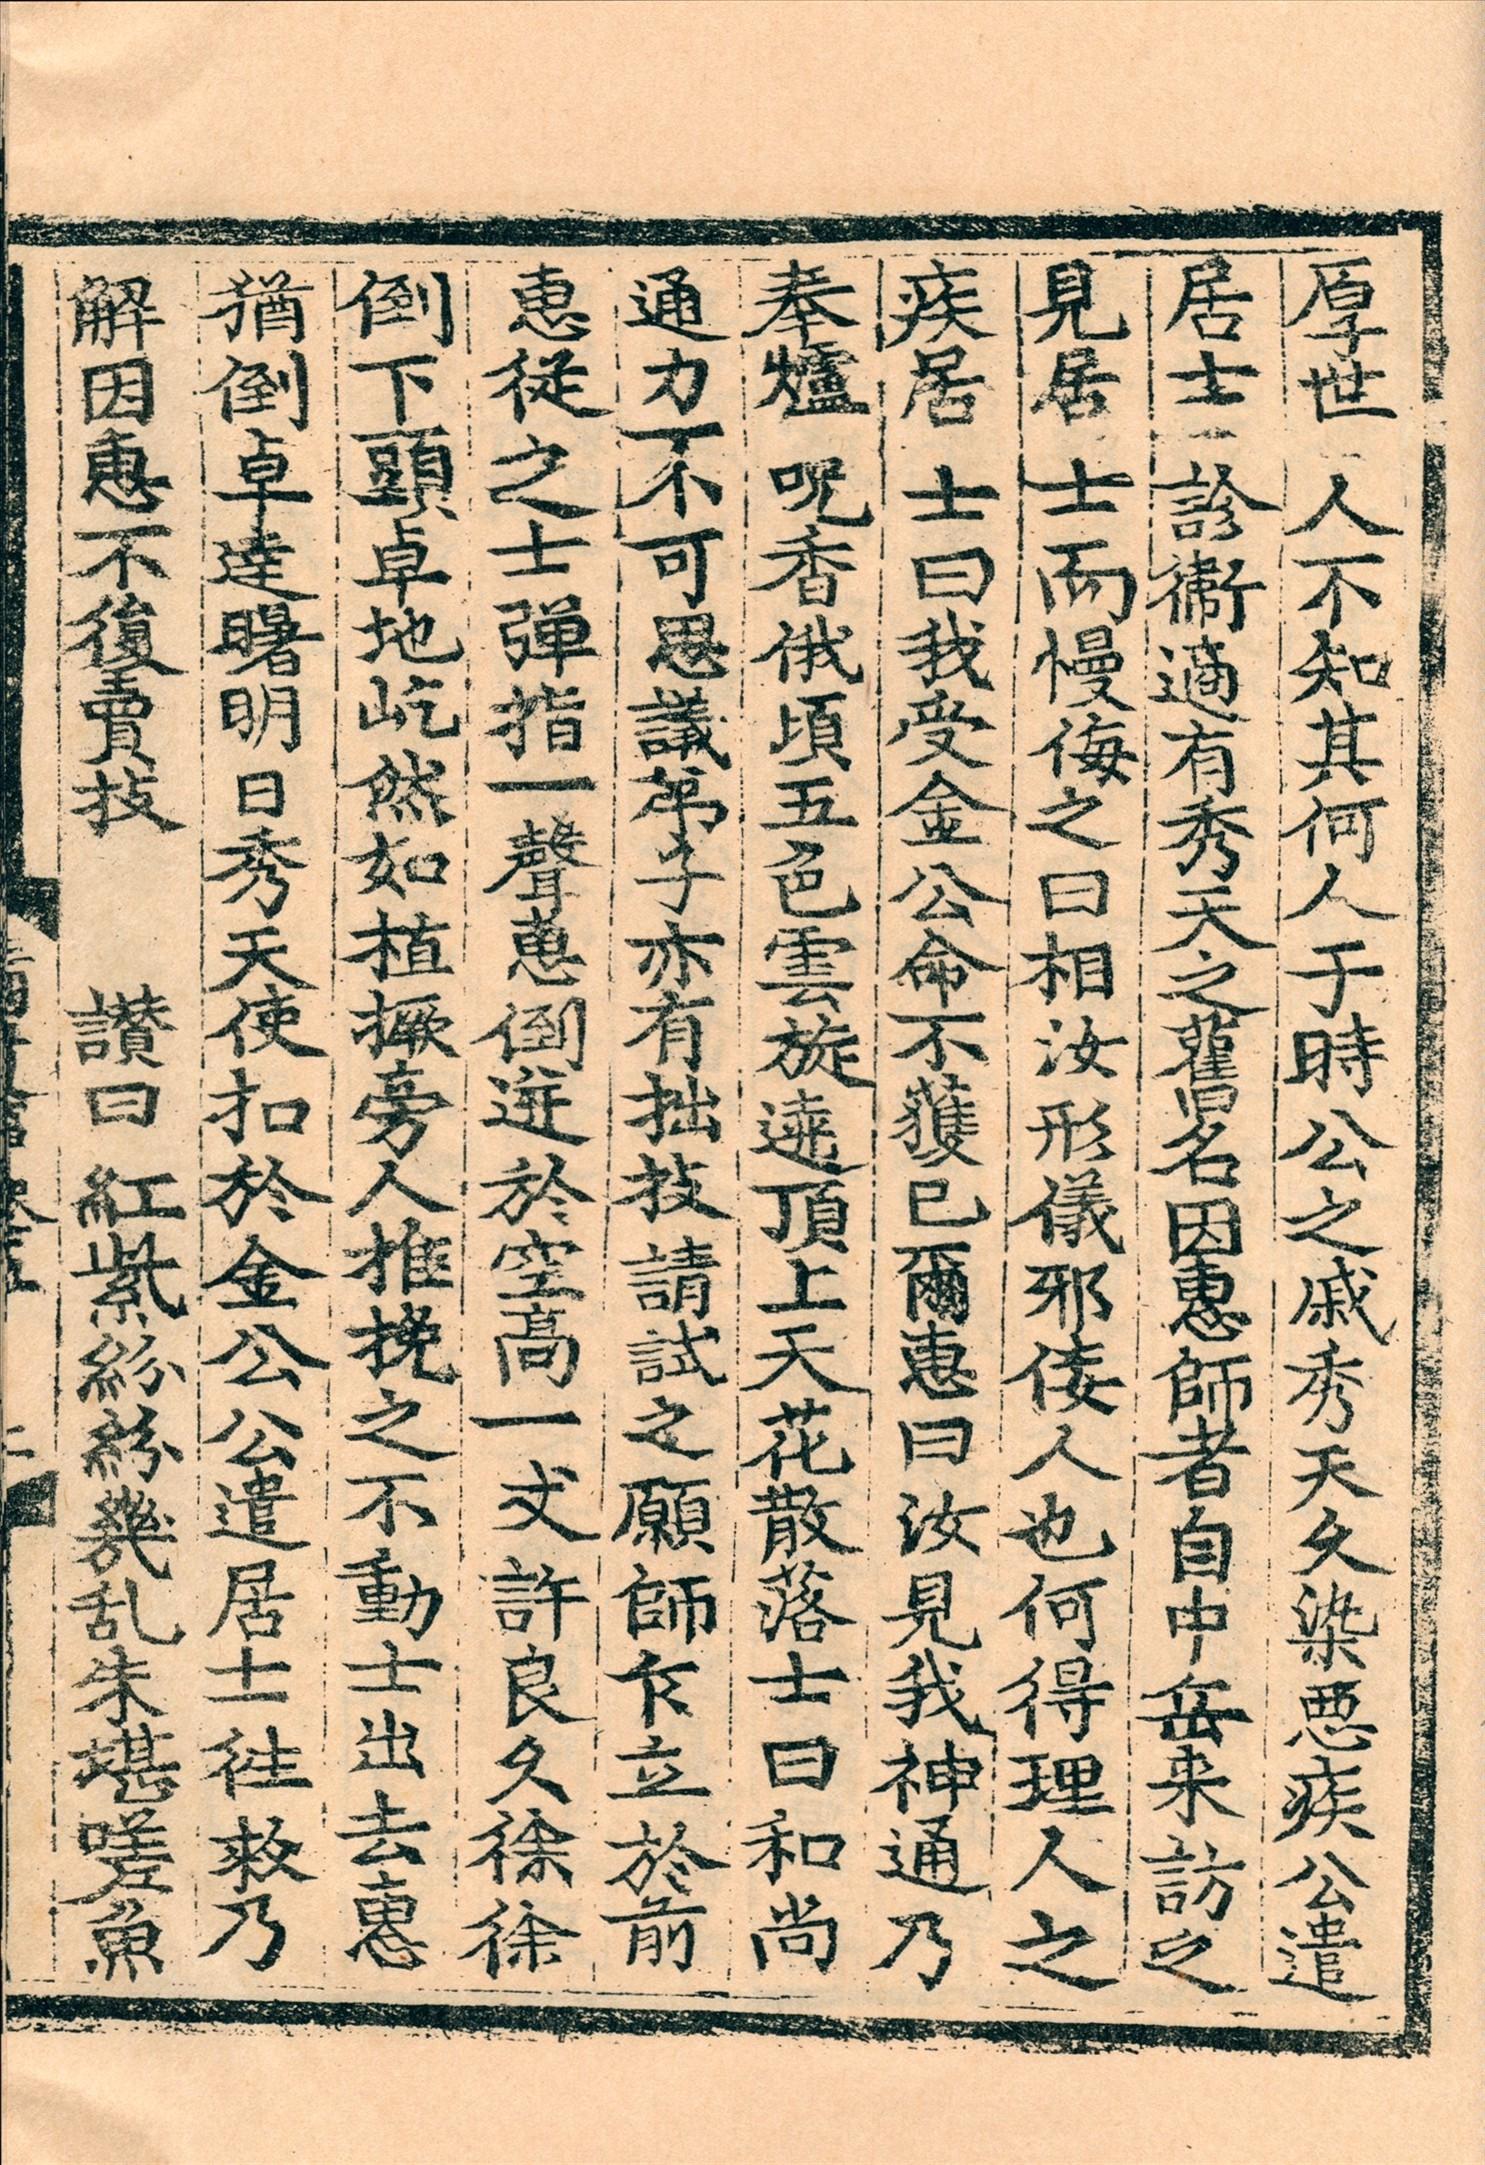 厚世人不知其何人于時公之戚秀天久染惡疾公遣
居士診衛適有秀天之舊名因惠師者自中岳来訪之
見居士而慢侮之曰相汝形儀邪佞人也何得理人之
疾居士曰我受金公命不獲已爾惠曰汝見我神通乃
奉爐呪香俄頃五色雲旋遶頂上天花散落士曰和尚
通力不可思議弟子亦有拙技請試之願師乍立於前
惠從之士彈指一聲惠倒迸於空高一丈許良久徐徐
倒下頭卓地屹然如植撅旁人推挽之不動士出去惠
猶倒卓達曙明日秀天使扣於金公公遣居士徃救乃
解因惠不復賣技 讃曰 紅紫紛紛幾乱朱堪嗟魚
二